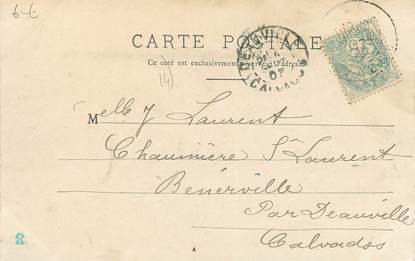 6-€
CARTE POSTALE
Ce côté est exclusivement réservé à l'adresse
DEAUVILLE
CALVADOS
(4)
Melle J Laurent
Chaumière St Laurent
Bénerville
Par Deauville
Calvados